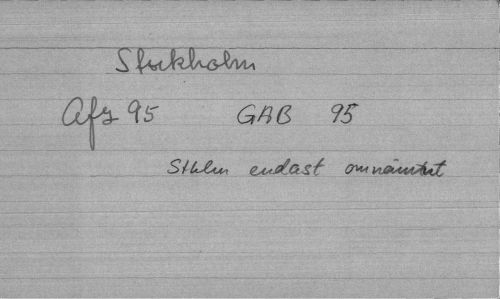 Stockholm
Afz 95 GAB 95
Sthlm endast omnämnt